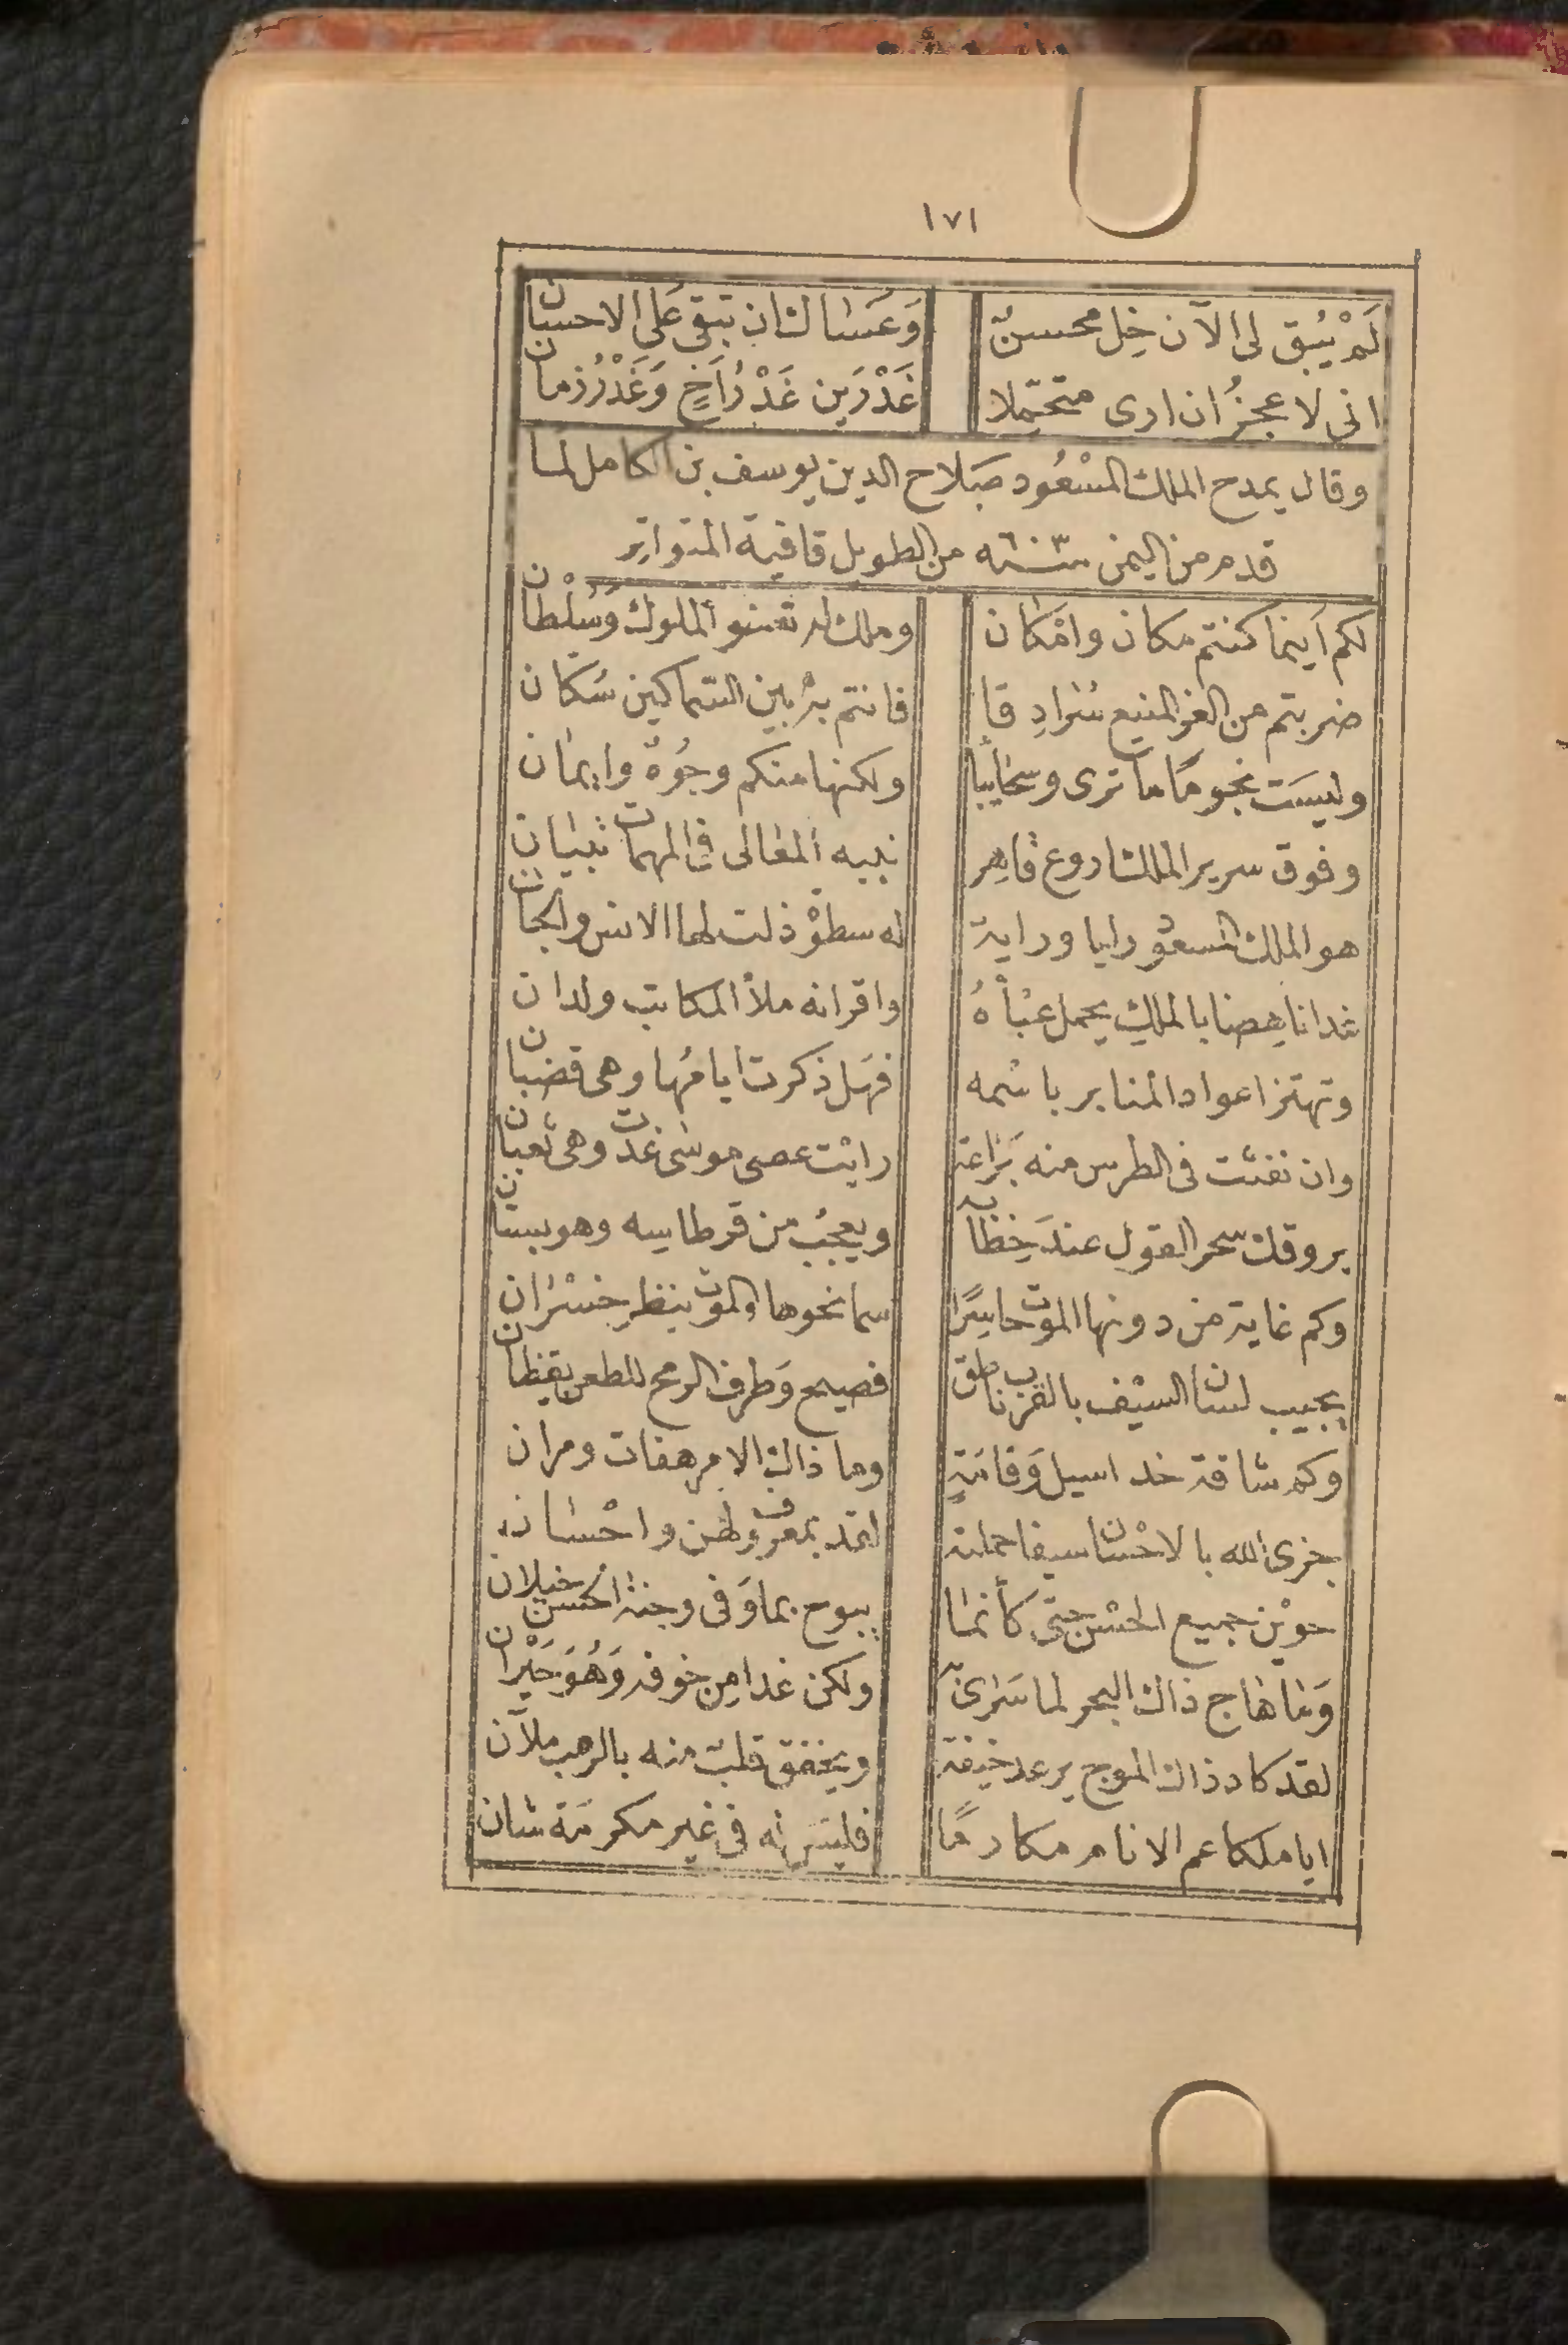 ١٧١
لَمْ يُبق لى الآن خِل محسنٌ وَعَسَاك ان تبقى عَلى الاحسان
انى لا عجزُ ان ارى متحمّلا غَدْرَين غَدْرُ اَخٍ وَغَدْرُ زمان
وقال يمدح الملك المسْعُود صَلاح الدين يوسف بن الكامل لما
قدم من اليمن سنة من الطويل قافية المتواتِر
لكم اَينما كنتم مكان وامكان وملك له تعنو الملوك وَسُلْطان
ضربتم من العز المنيع سُرادِقا فانتم به بين السّماكين سُكّان
وليسَت نجومًا ما ترى وسحايبًا ولكنها منكم وجُوهٌ وايمان
وفوق سرير الملك اروع قاهِر نبيه المعالى فى المهمات نبيان
هو الملك المسعود رايا وراية له سطوة ذلت لها الانس والجان
غدا ناهِضا بالملكِ يحمل عبْأهُ واقرانه ملأ المكاتب ولدان
وتهتز اعواد المنابر باسْمه فهَل ذكرت ايامُها وهى قضبان
وان نفثت فى الطرس منه يَرَاعة رايْت عصى موسى غدت وهى ثعبان
يروقك سحر القول عندَ خِطابه ويعجبُ من قرطاسه وهو بستان
وكم غاية من دونها الموت حاسِرًا سما نحوها والموت ينظر خسْران
يجيب لسان السيْف بالضرب ناطق فصيح وَطرف الرمح للطعن يقظان
وكم شاقه خد اسيل وَقامَةٍ وما ذاك الا مرهفات ومران
جزى الله بالاحْسان سيفا حملنه لقد بمعروف لهن واحْسان
حويْن جميع الحسْن حتى كأنما يبوح بما وَفى وجنة الحسن خيلان
وَما هاج ذاك البحر لما سَرى به ولكن غدا مِن خوفه وَهُوَ حَيْران
لقد كاد ذاك الموج يرعد خيفة ويخفق قلب منه بالرعب ملآن
ايا ملكا عم الانام مكارمًا فليسَ له فى غير مكرمَة شان